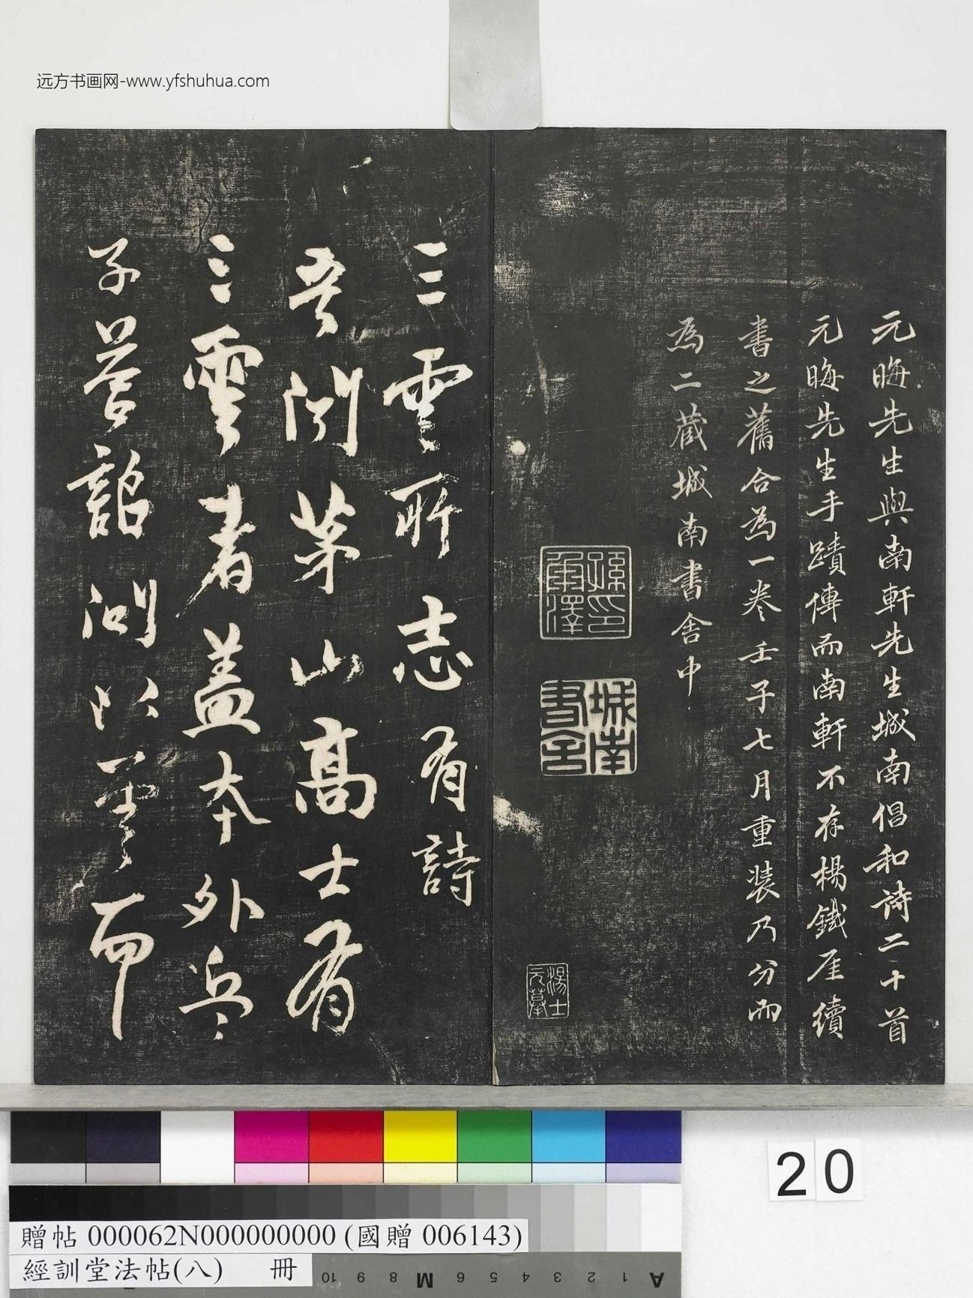 远方书画网-www.yfshuhua.com
元晦先生與南軒先生城南倡和詩二十首
元晦先生手蹟傳而南軒不存楊鐵厓續
書之舊合為一卷壬子七月重裝乃分而
為二藏城南書舍中
孫印承澤
城南書舍
湯士元摹
三雲所志有詩
吾閒茅山高士有
三雲者蓋本外兵
子營詔問以筆而
20
贈帖 000062N000000000 (國贈 006143)
經訓堂法帖(八) 冊
10 9 8 M 6 5 4 3 2 1 A